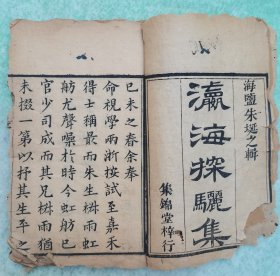 海鹽朱埏之輯
瀛海探驪集
集錦堂梓行
已未之春余奉
命視學兩浙按試至嘉禾
得士稱最而朱生楙雨虹
舫尤聲噪於時今虹舫已
官少司成而其兄楙雨猶
未掇一第以抒其生平之